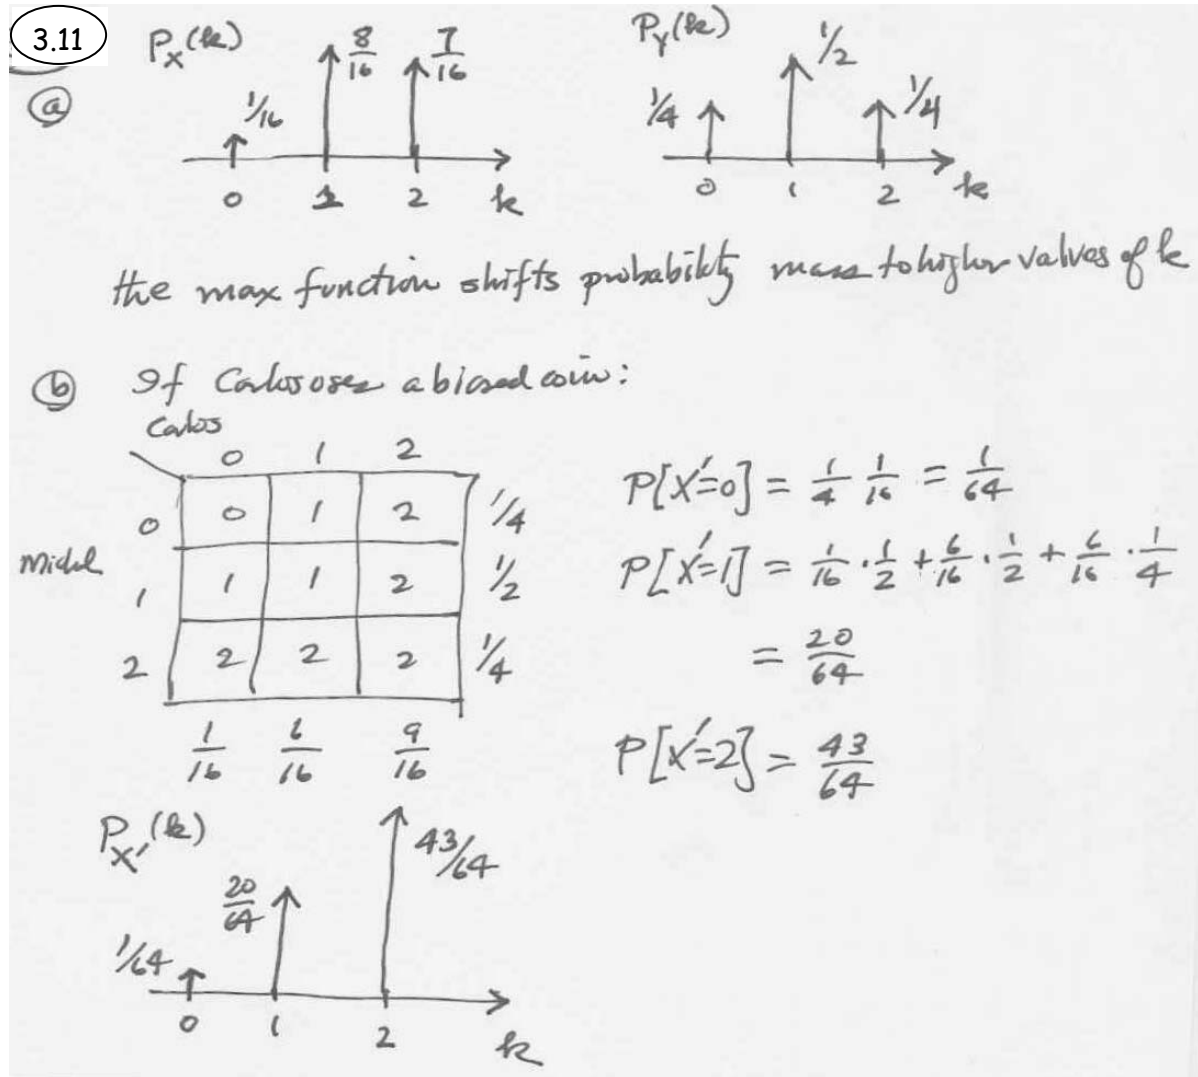 3.11
ⓐ
Pₓ(k)
1/16
8/16
7/16
0 1 2 k
P_Y(k)
1/4
1/2
1/4
0 1 2 k
the max function shifts probability mass to higher values of k
ⓑ If Carlos uses a biased coin:
Carlos
0 1 2
0 0 1 2 1/4
Michel 1 1 1 2 1/2
2 2 2 2 1/4
1/16 6/16 9/16
P[X'=0] = 1/4 1/16 = 1/64
P[X'=1] = 1/16 · 1/2 + 6/16 · 1/2 + 6/16 · 1/4
= 20/64
P[X'=2] = 43/64
P_X'(k)
1/64
20/64
43/64
0 1 2 k